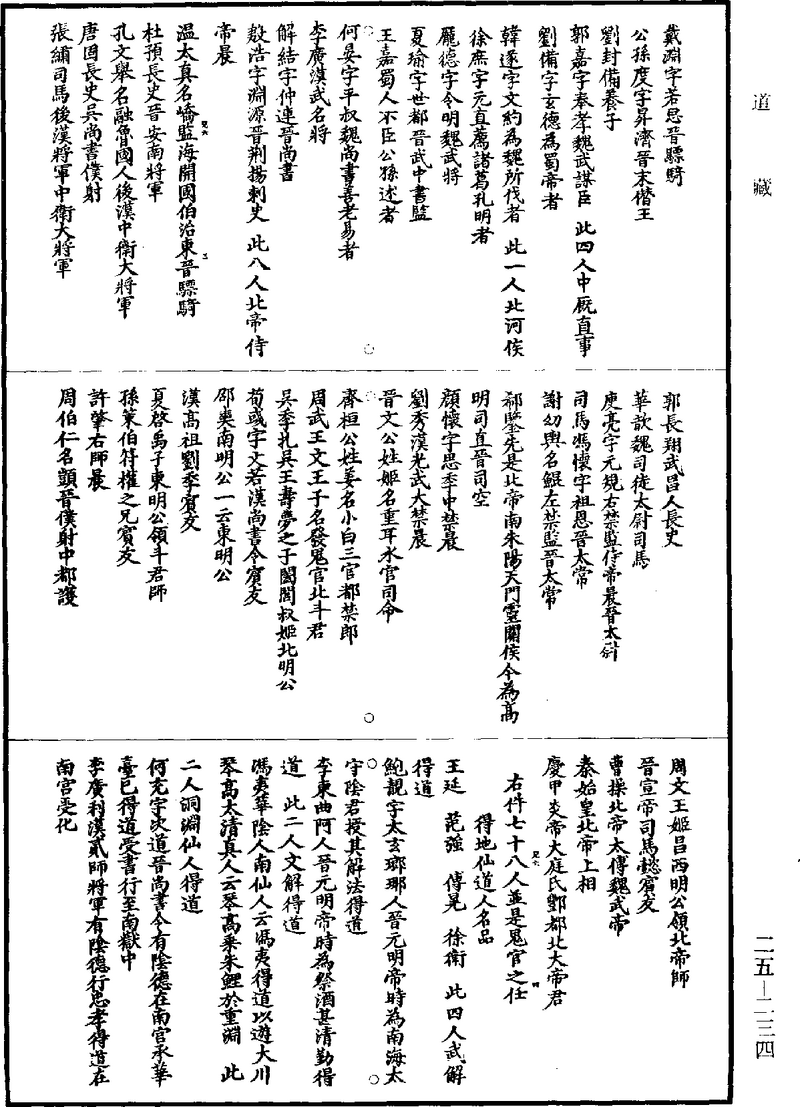 道藏
戴淵字若思晉驃騎
公孫度字昇濟晉末僭王
劉封備養子
郭嘉字奉孝魏武謀臣 此四人中厩直事
劉備字玄德為蜀帝者
韓遂字文約為魏所伐者 此一人北河侯
徐庶字元直薦諸葛孔明者
龐德字令明魏武將
夏瑜字世都晉武中書監
王嘉蜀人不臣公孫述者
何晏字平叔魏尚書善老易者
李廣漢武名將
解結字仲連晉尚書
殷浩字淵源晉荆揚刺史 此八人北帝侍
帝晨
温太真名嶠監海開國伯治東晉驃騎
杜預長史晉安南將軍
孔文舉名融魯國人後漢中衛大將軍
唐固長史吳尚書僕射
張繡司馬後漢將軍中衛大將軍
郭長翔武昌人長史
華歆魏司徒太尉司馬
庾亮字元規右禁監侍帝晨晉太尉
司馬馮懷字祖思晉太常
謝幼輿名鯤左禁監晉太常
郗鑒先是北帝南朱陽天門靈關侯今為高
明司直晉司空
顏懷字思季中禁晨
劉秀漢光武大禁晨
晉文公姓姬名重耳水官司命
齊桓公姓姜名小白三官都禁郎
周武王文王子名發鬼官北斗君
吳季札吳王壽夢之子闔閭叔姬北明公
荀彧字文若漢尚書令賓友
邵奭南明公一云東明公
漢高祖劉季賓友
夏啓禹子東明公領斗君師
孫策伯符權之兄賓友
許肇右師晨
周伯仁名顗晉僕射中都護
周文王姬昌西明公領北帝師
晉宣帝司馬懿賓友
曹操北帝太傅魏武帝
秦始皇北帝上相
慶甲炎帝大庭氏酆都北大帝君
右件七十八人並是鬼官之任
得地仙道人名品
王延 范強 傅晃 徐衛 此四人武解
得道
鮑靚字太玄瑯琊人晉元明帝時為南海太
守陰君授其解法得道
李東曲阿人晉元明帝時為祭酒甚清勤得
道 此二人文解得道
馮夷華陰人南仙人云馮夷得道以遊大川
琴高太清真人云琴高乘朱鯉於重淵 此
二人洞淵仙人得道
何充字次道晉尚書令有陰德在南宮承華
臺已得道受書行至南嶽中
李廣利漢貳師將軍有陰德行忠孝得道在
南宮受化
二五—二三四